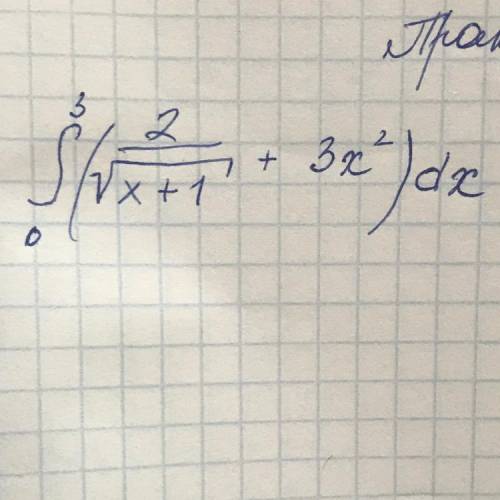 Прак
∫₀³ (2/√(x+1) + 3x²) dx